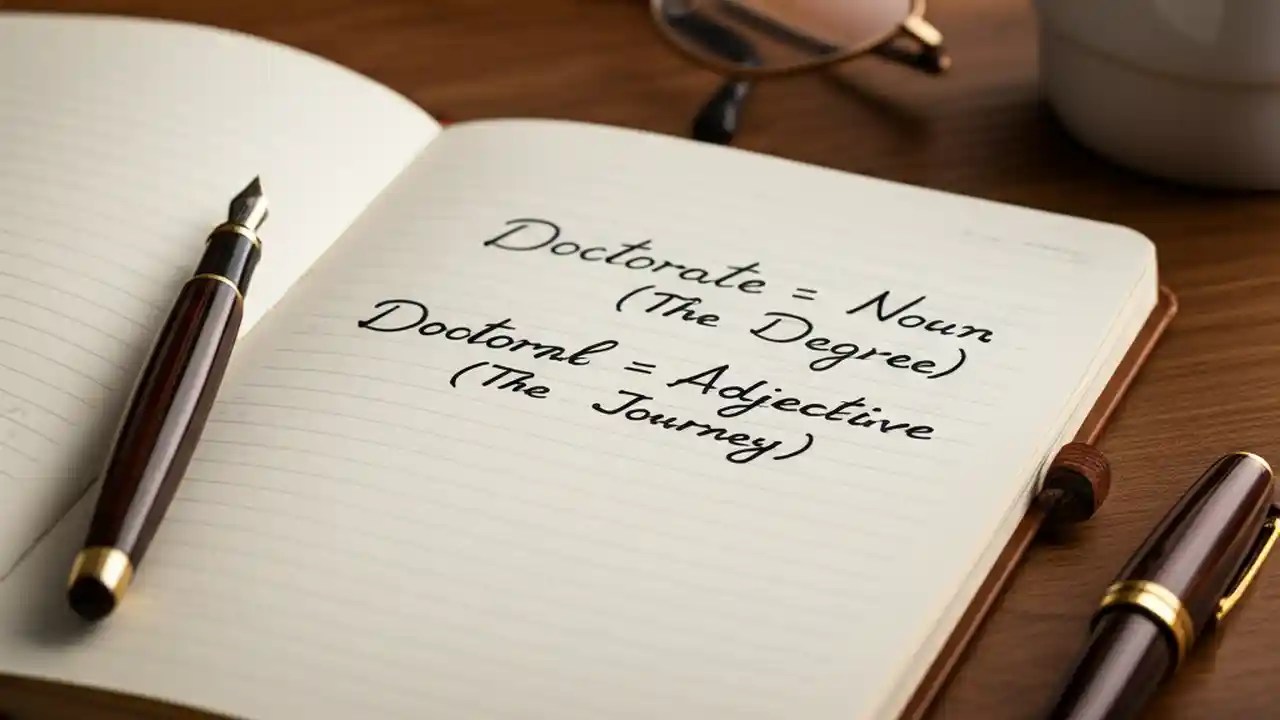 Doctorate = Noun
(The Degree)
Doctoral = Adjective
(The Journey)